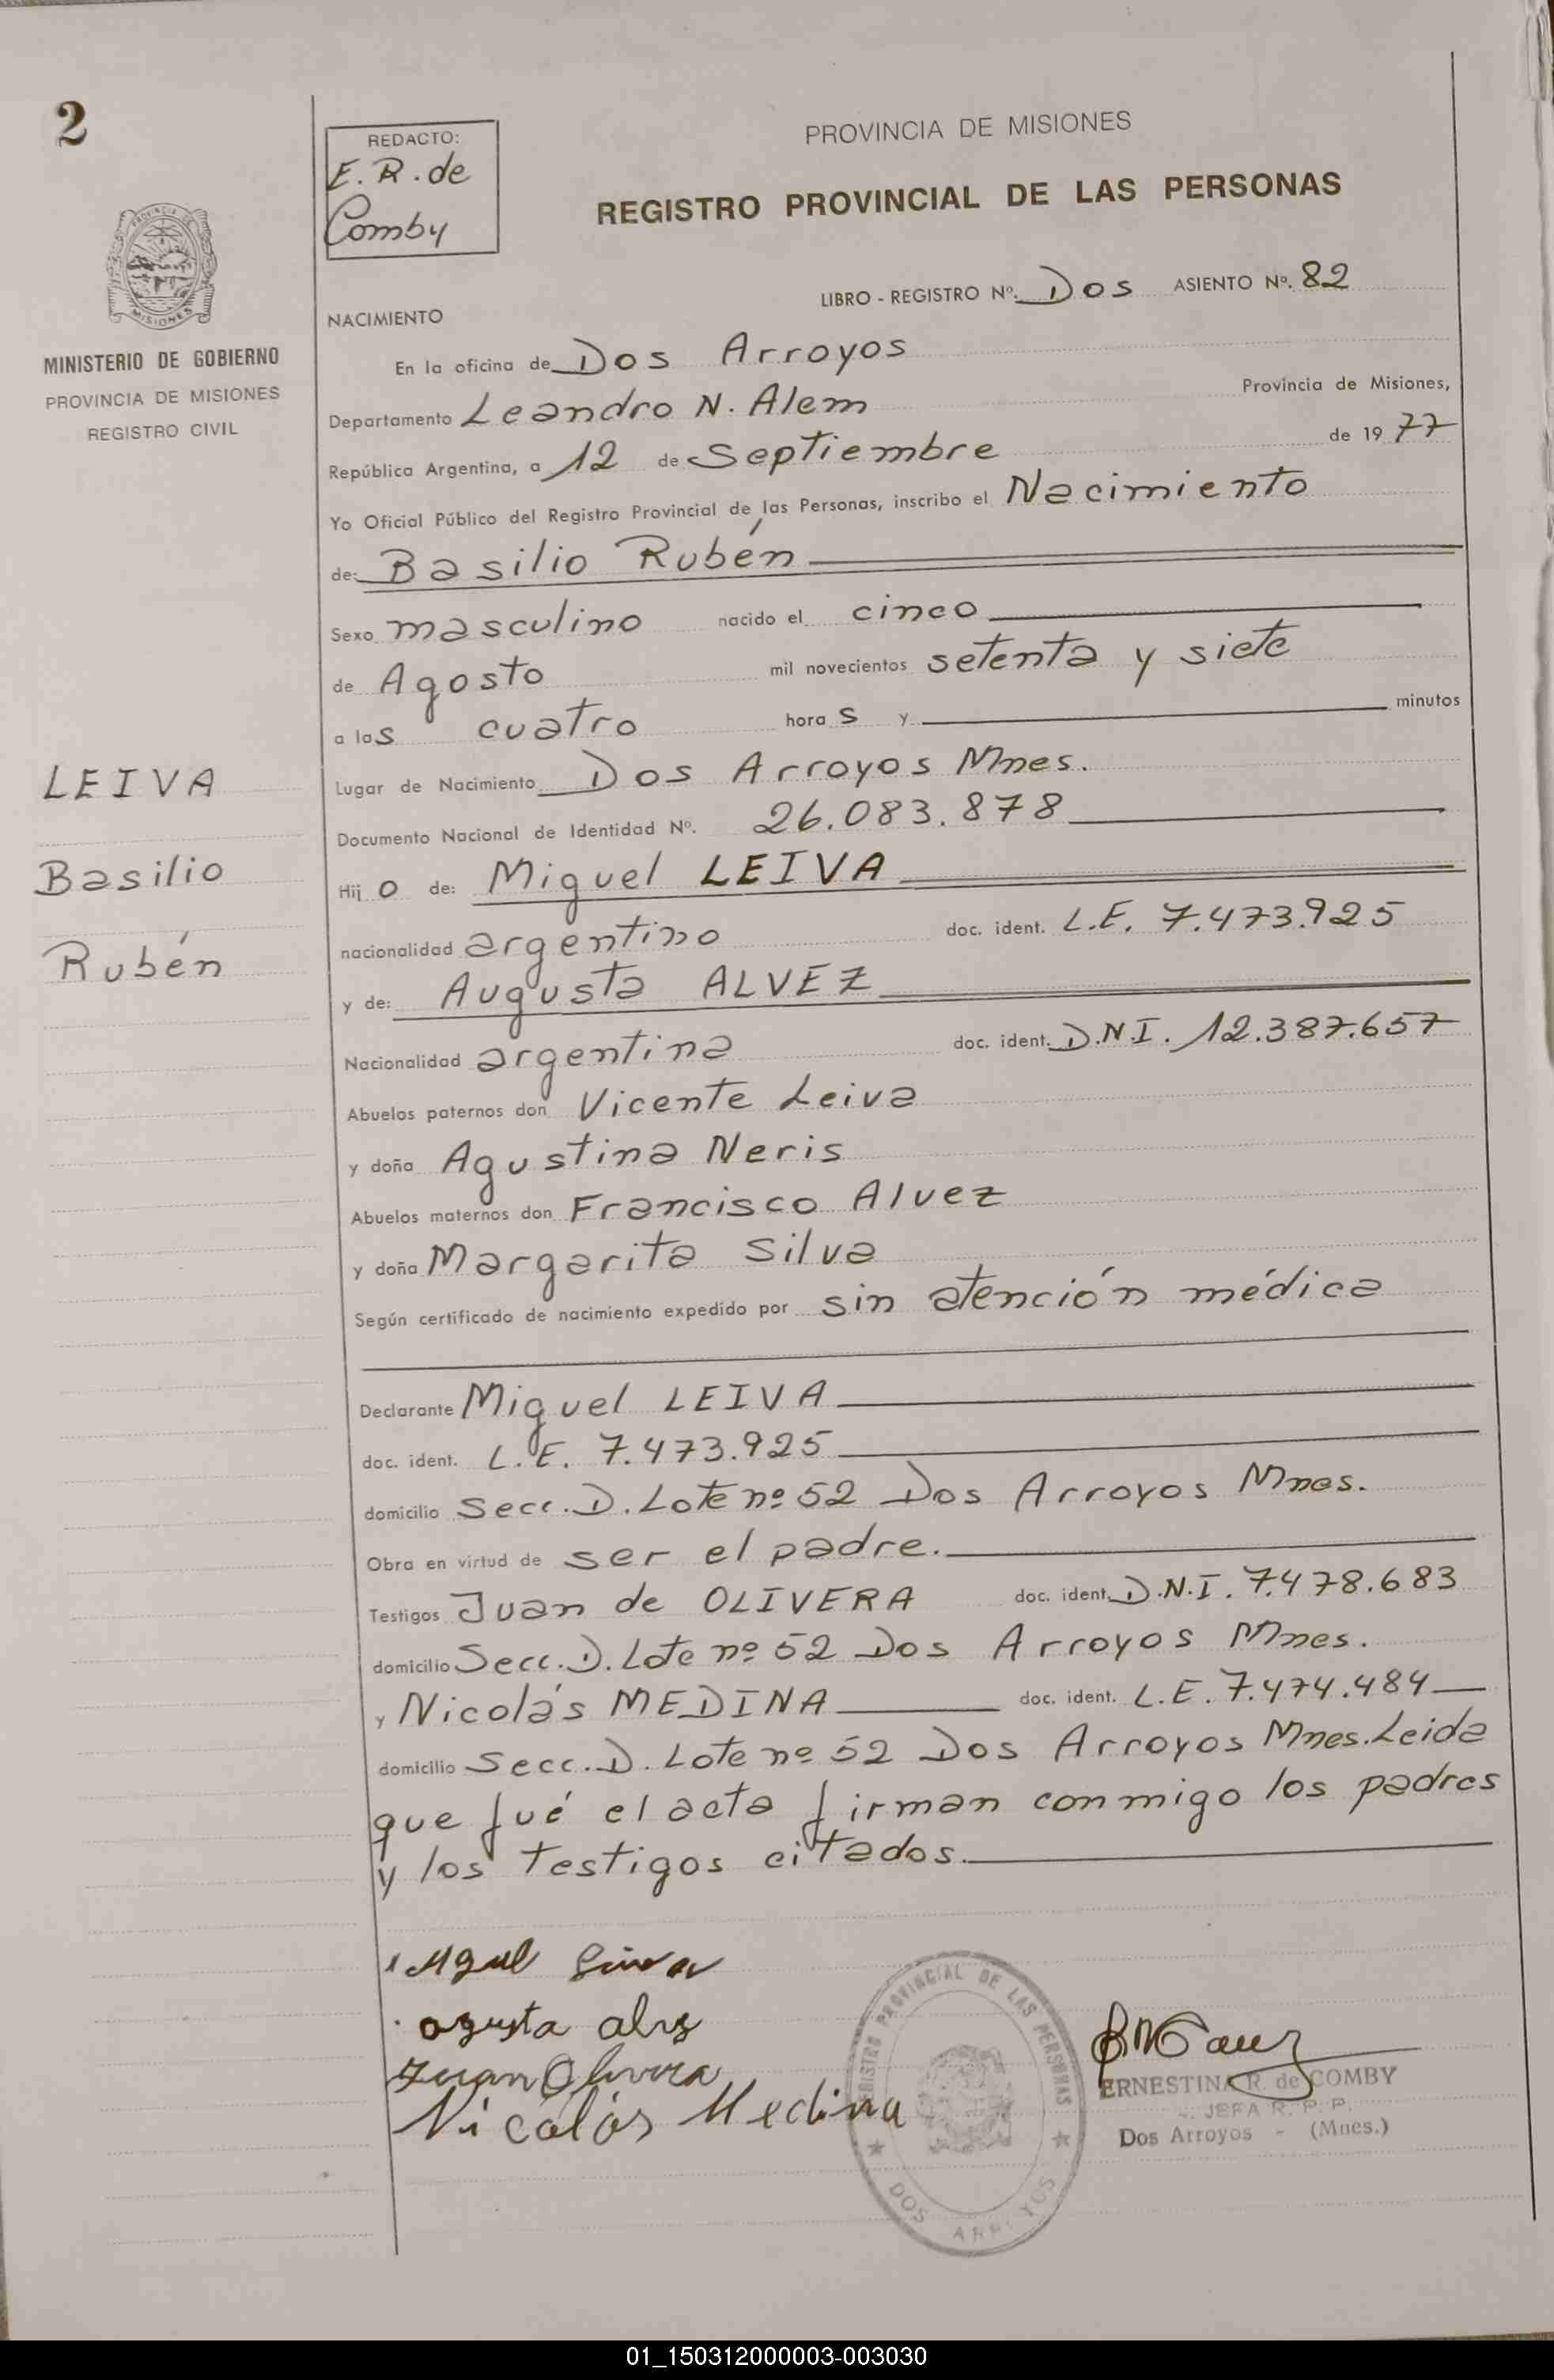 2
REDACTO:
E. R. de
Comby
PROVINCIA DE MISIONES
REGISTRO PROVINCIAL DE LAS PERSONAS
PROVINCIA DE
MISIONES
MINISTERIO DE GOBIERNO
PROVINCIA DE MISIONES
REGISTRO CIVIL
LIBRO - REGISTRO Nº. Dos ASIENTO Nº. 82
NACIMIENTO
En la oficina de Dos Arroyos
Departamento Leandro N. Alem Provincia de Misiones,
República Argentina, a 12 de Septiembre de 1977
Yo Oficial Público del Registro Provincial de las Personas, inscribo el Nacimiento
de: Basilio Rubén
Sexo masculino nacido el cinco
de Agosto mil novecientos setenta y siete
a las cuatro horas y minutos
Lugar de Nacimiento Dos Arroyos Mnes.
Documento Nacional de Identidad Nº. 26.083.878
LEIVA
Basilio
Rubén
Hijo de: Miguel LEIVA
nacionalidad argentino doc. ident. L.E. 7.473.925
y de: Augusta ALVEZ
Nacionalidad argentina doc. ident. D.N.I. 12.387.657
Abuelos paternos don Vicente Leiva
y doña Agustina Neris
Abuelos maternos don Francisco Alvez
y doña Margarita Silva
Según certificado de nacimiento expedido por sin atención médica
Declarante Miguel LEIVA
doc. ident. L.E. 7.473.925
domicilio Secc. D. Lote nº 52 Dos Arroyos Mnes.
Obra en virtud de ser el padre.
Testigos Juan de OLIVERA doc. ident. D.N.I. 7.478.683
domicilio Secc. D. Lote nº 52 Dos Arroyos Mnes.
y Nicolás MEDINA doc. ident. L.E. 7.474.484
domicilio Secc. D. Lote nº 52 Dos Arroyos Mnes. Leida
que fué el acta firman conmigo los padres
y los testigos citados.
agusta
Juan Olivera
Nicolás Medina
REGISTRO PROVINCIAL DE LAS PERSONAS
DOS ARROYOS
ERNESTINA R. de COMBY
JEFA R. P. P.
Dos Arroyos - (Mnes.)
01_150312000003-003030